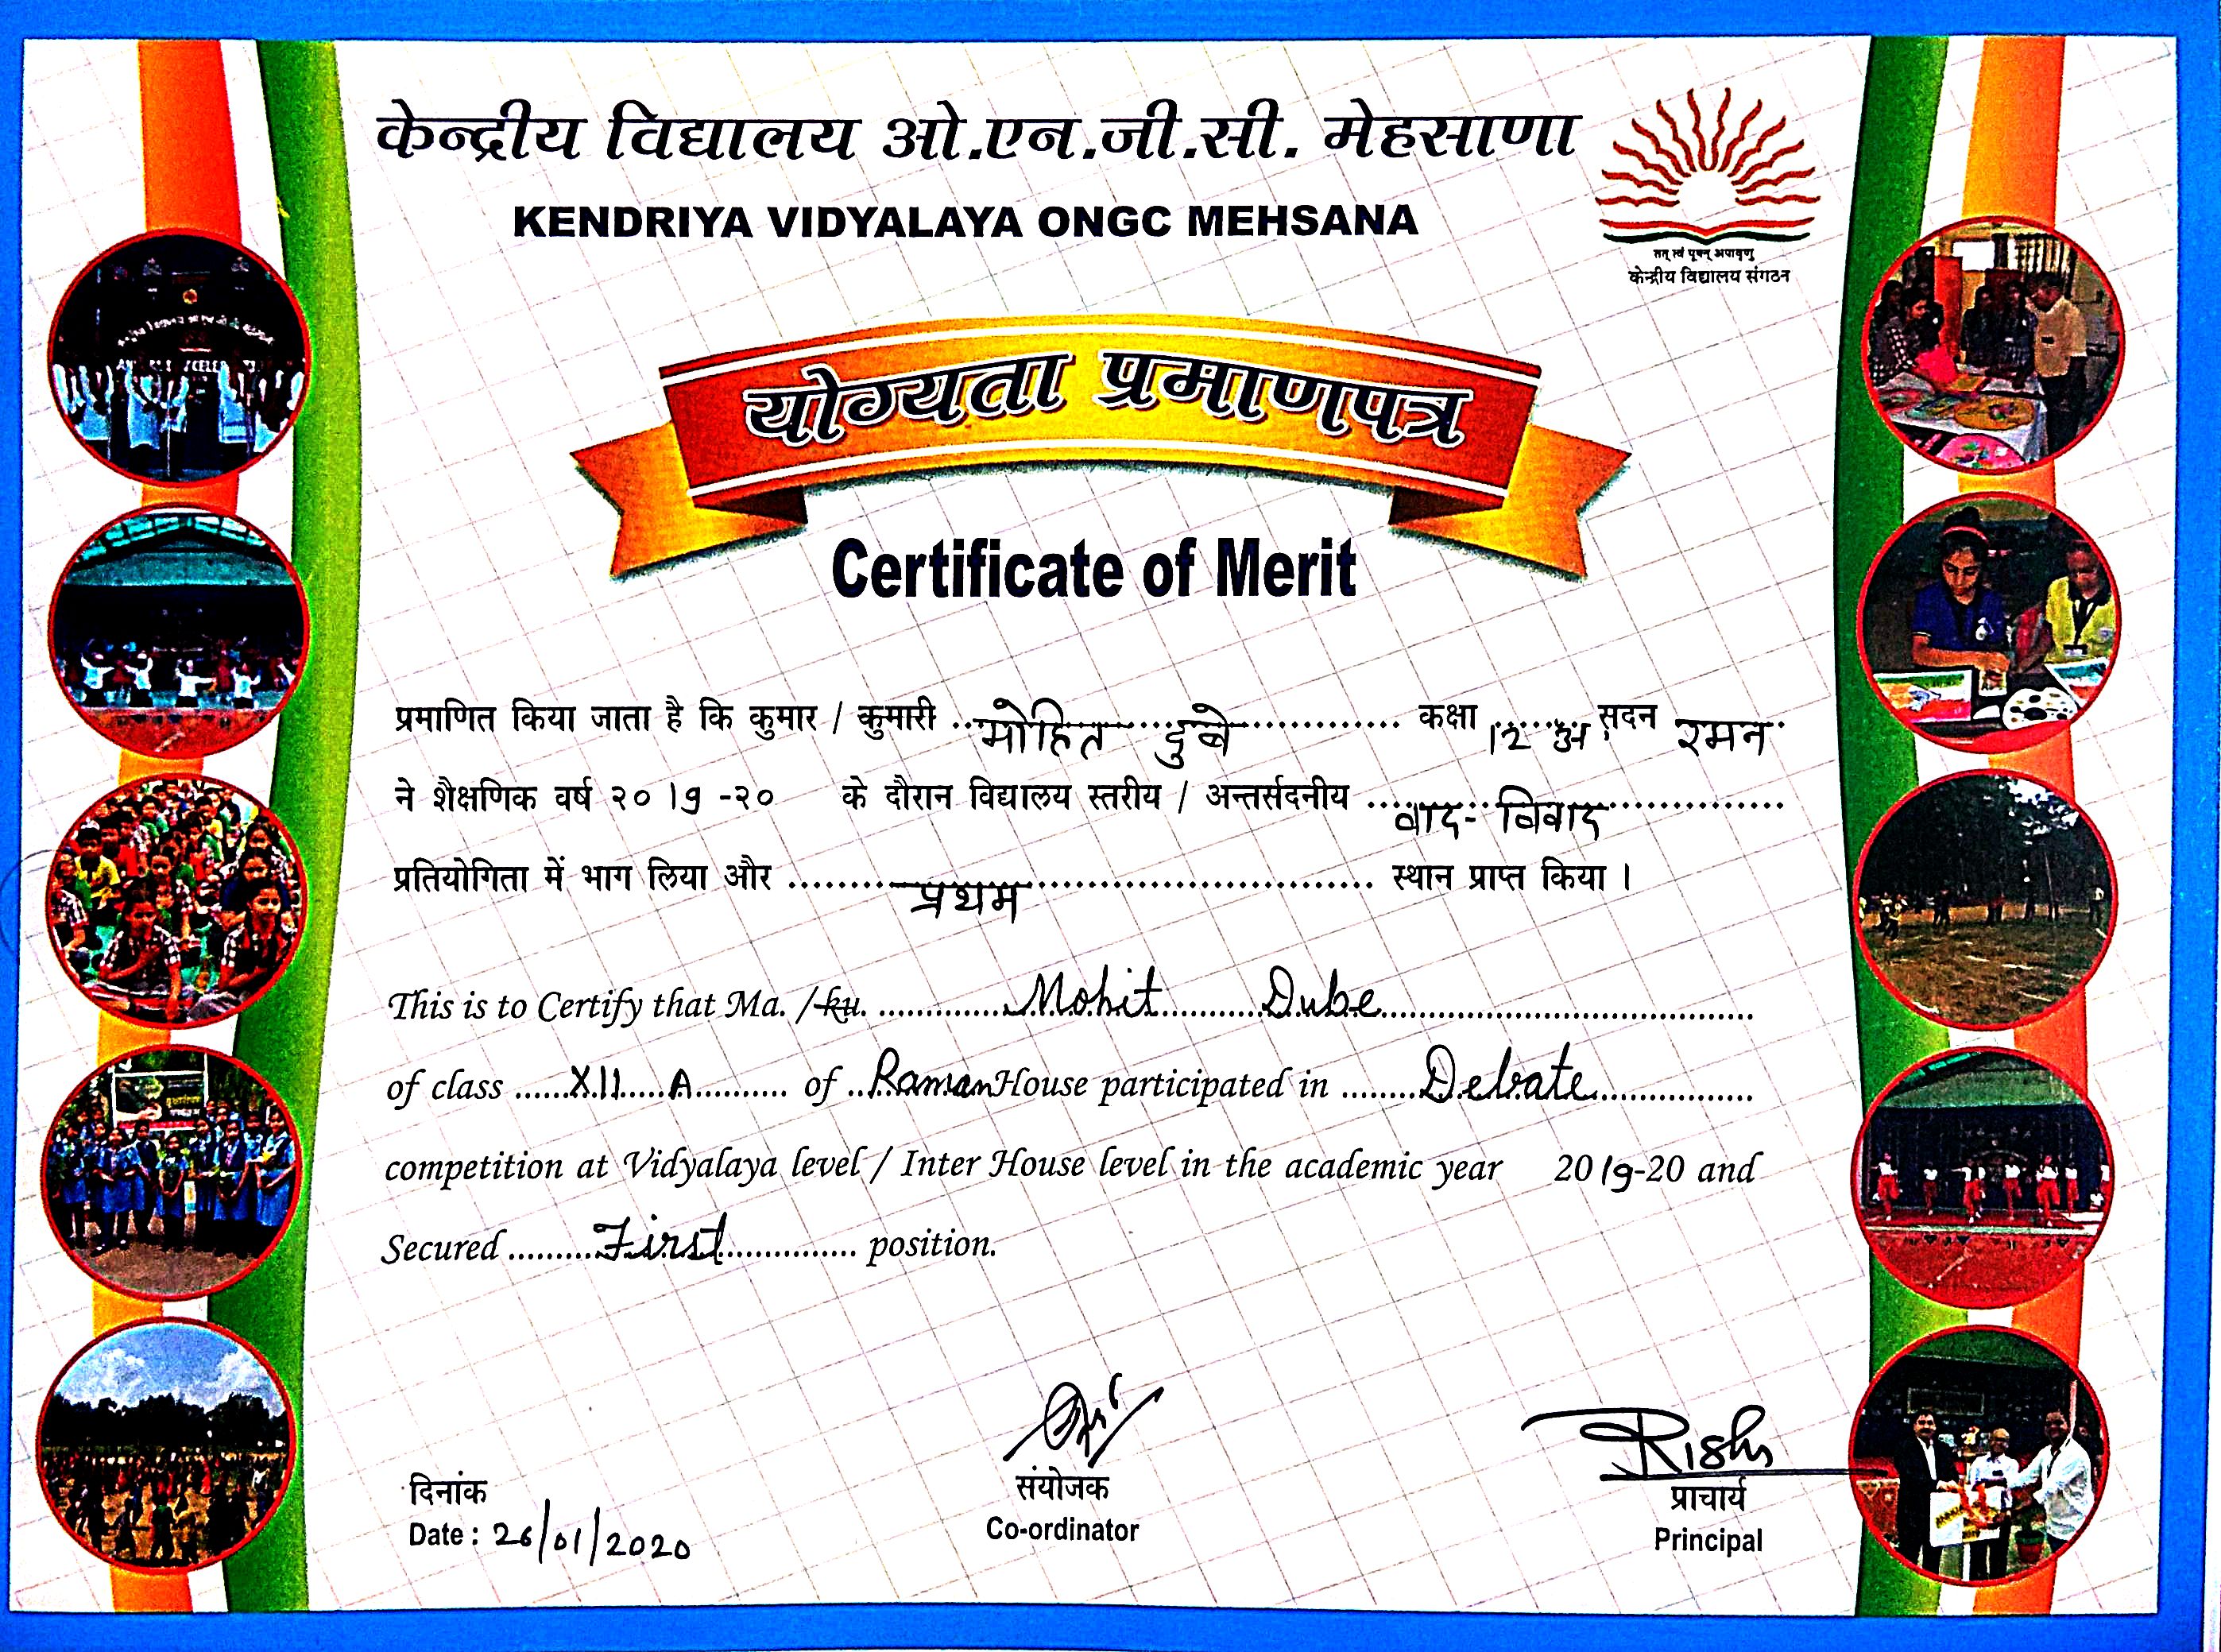 केन्द्रीय विद्यालय ओ.एन.जी.सी. मेहसाणा
KENDRIYA VIDYALAYA ONGC MEHSANA
तत् त्वं पूषन् अपावृणु
केन्द्रीय विद्यालय संगठन
योग्यता प्रमाणपत्र
Certificate of Merit
प्रमाणित किया जाता है कि कुमार / कुमारी मोहित दुबे कक्षा 12 अ सदन रमन
ने शैक्षणिक वर्ष २० 19 -२० के दौरान विद्यालय स्तरीय / अन्तर्सदनीय वाद- विवाद
प्रतियोगिता में भाग लिया और प्रथम स्थान प्राप्त किया ।
This is to Certify that Ma. / ku. Mohit Dube
of class XII A of Raman House participated in Debate
competition at Vidyalaya level / Inter House level in the academic year 2019-20 and
Secured First position.
दिनांक
Date : 26/01/2020
संयोजक
Co-ordinator
Rishi
प्राचार्य
Principal